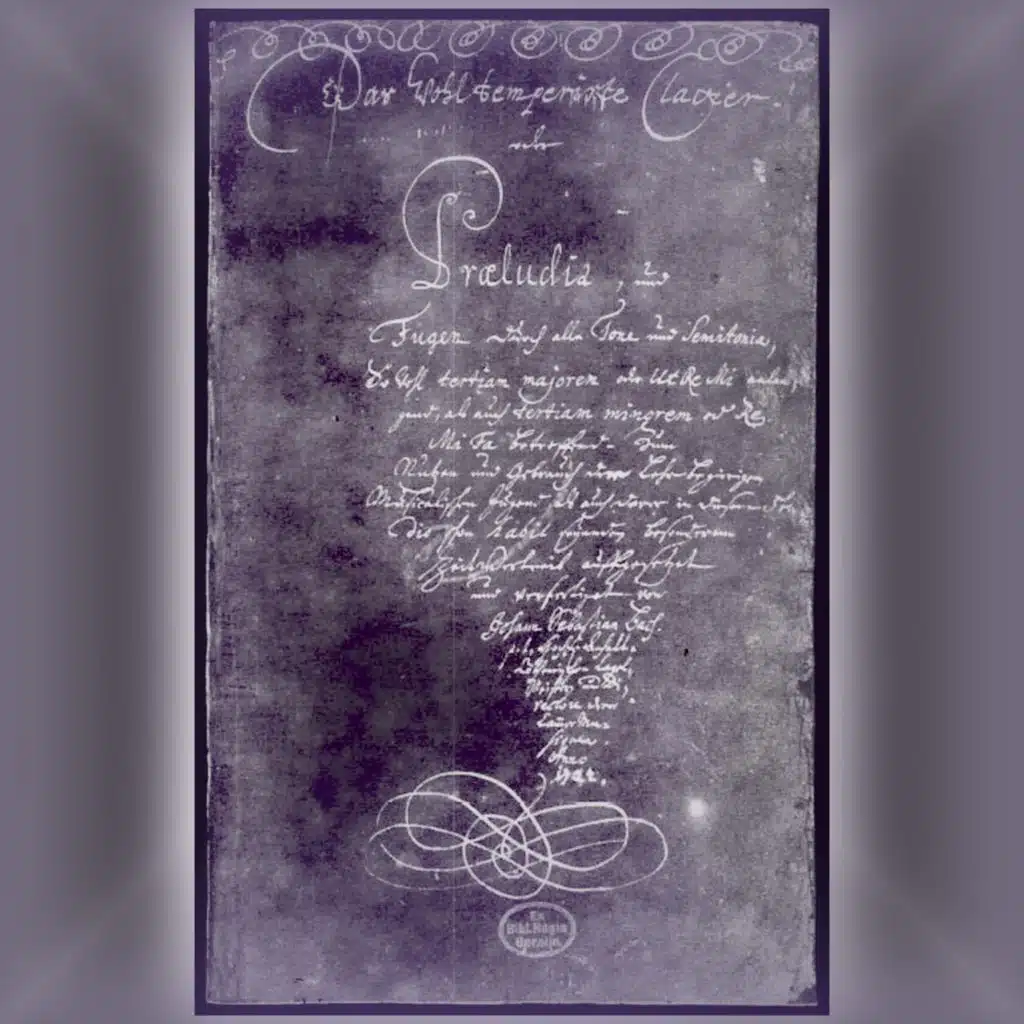 Das Wohltemperirte Clavier.
oder
Præludia, und
Fugen durch alle Tone und Semitonia,
So wohl tertiam majorem oder Ut Re Mi anlan-
gend, als auch tertiam minorem oder Re
Mi Fa betreffend. Zum
Nutzen und Gebrauch der Lehrbegierigen
Musicalischen Jugend als auch derer in diesem
studio schon habil seyenden besonderem
Zeitvertreib auffgesetzet
und verfertiget von
Johann Sebastian Bach.
p. t. Hochfürstl.
Capel-
Meistern und Di-
rectore derer
Cammer Mu-
siquen.
Anno
1722.
Ex
Bibl. Regia
Berolin.